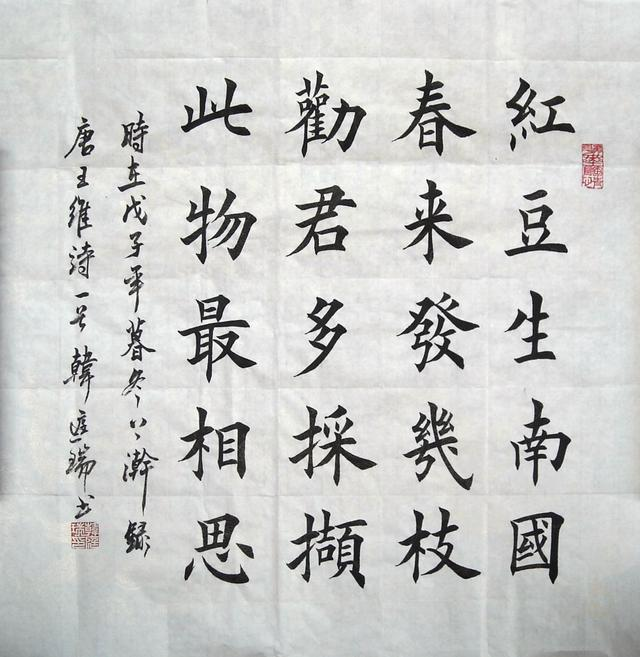 紅豆生南國
春来發幾枝
勸君多採擷
此物最相思
時在戊子年暮冬上瀚録
唐王維詩一首韓 瑞书